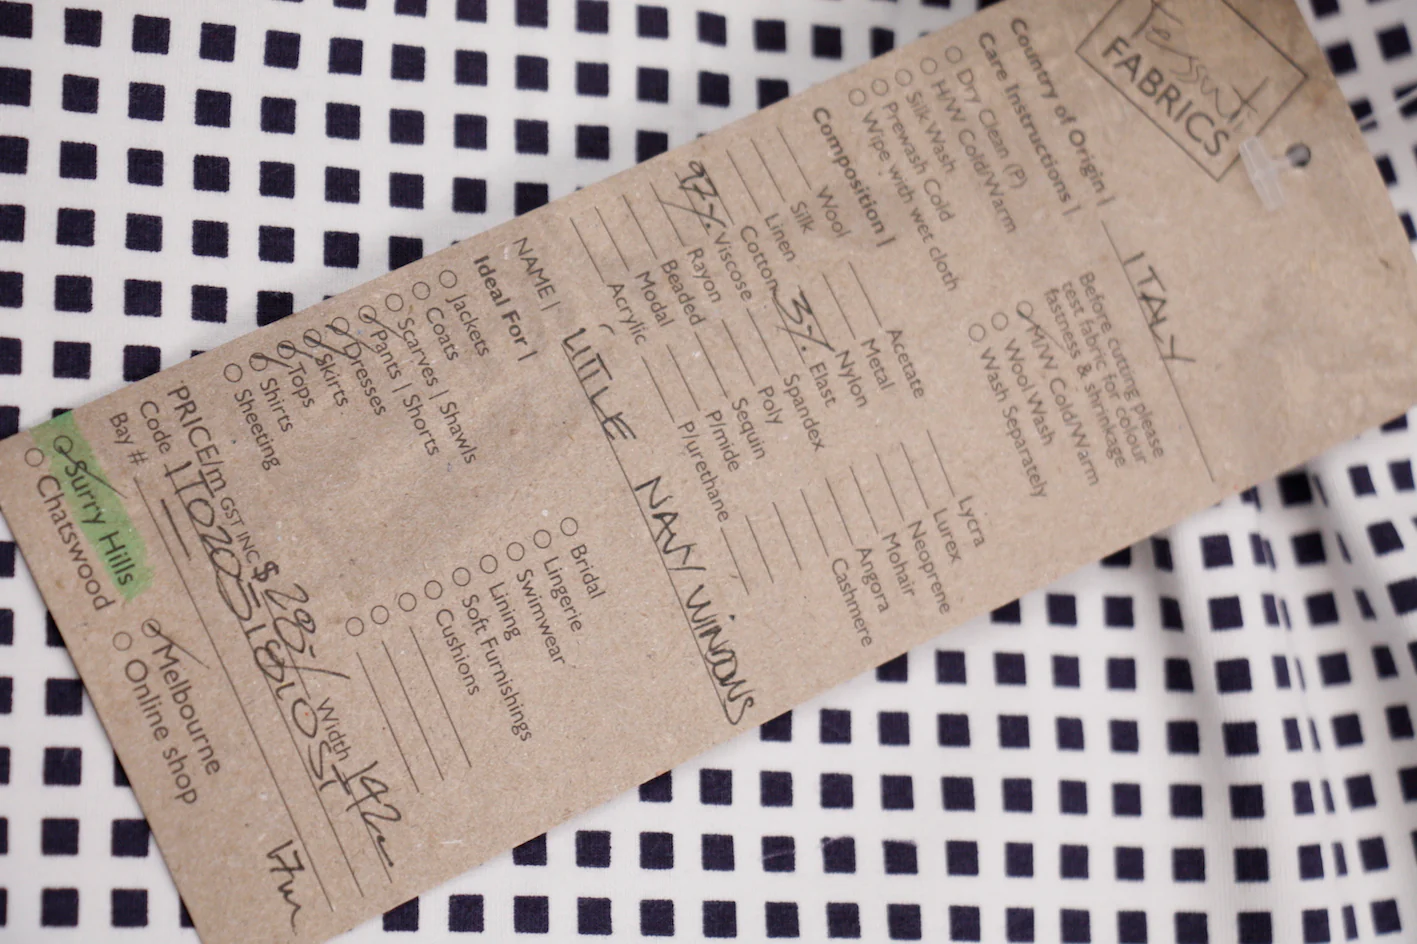 Tessuti
FABRICS
Country of Origin | ITALY
Care Instructions |
Dry Clean (P)
H/W Cold/Warm
Silk Wash
Prewash Cold
Wipe with wet cloth
Before cutting please
test fabric for colour
fastness & shrinkage
M/W Cold/Warm
Wool Wash
Wash Separately
Composition |
Wool
Silk
Linen
Cotton
97% Viscose
Rayon
Beaded
Modal
Acrylic
Acetate
Metal
Nylon
3% Elast
Spandex
Poly
Sequin
P/mide
P/urethane
Lycra
Lurex
Neoprene
Mohair
Angora
Cashmere
NAME | LITTLE NAVY WINDOWS
Ideal For |
Jackets
Coats
Scarves | Shawls
Pants | Shorts
Dresses
Skirts
Tops
Shirts
Sheeting
Bridal
Lingerie
Swimwear
Lining
Soft Furnishings
Cushions
PRICE/m GST INC $ 28 Width 142
Code
Bay # 17m
Surry Hills
Chatswood
Melbourne
Online shop